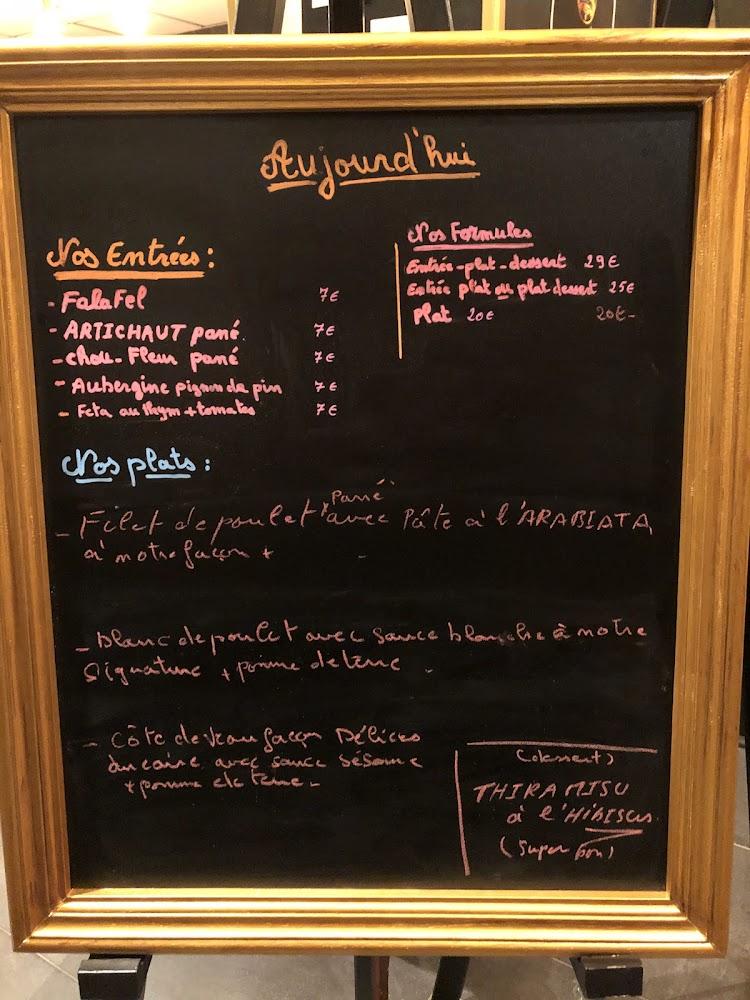 Aujourd'hui
Nos Entrées :
- FalaFel 7€
- ARTICHAUT pané 7€
- chou-Fleur pané 7€
- Aubergine pignon de pin 7€
- Feta au thym + tomates 7€
Nos Formules
Entrée-plat-dessert 29€
Entrée plat ou plat dessert 25€
Plat 20€ 20€-
Nos plats :
Pané
- Filet de poulet avec Pâte à l'ARABIATA
à notre façon +
- Blanc de poulet avec sauce blanche à notre
Signature + pomme de terre -
- Côte de veau façon Délices
du caire avec sauce sésame
+ pomme de terre -
(dessert)
THIRAMISU
à l'HiBISCUS
(Super bon)